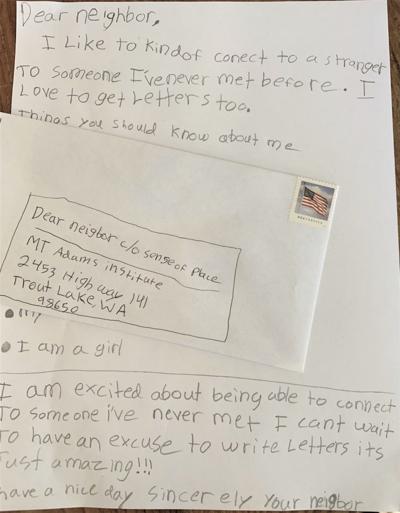 Dear neighbor,
I Like to kindof conect to a stranger
To someone I've never met before. I
Love to get Letters too.
Things you should know about me
Dear neigbor c/o sense of place
MT Adams institute
2453 Highway 141
Trout Lake, WA
98650
I am a girl
I am excited about being able to connect
To someone i've never met I cant wait
To have an excuse to write Letters its
Just amazing!!!
have a nice day sincerely your neigbor